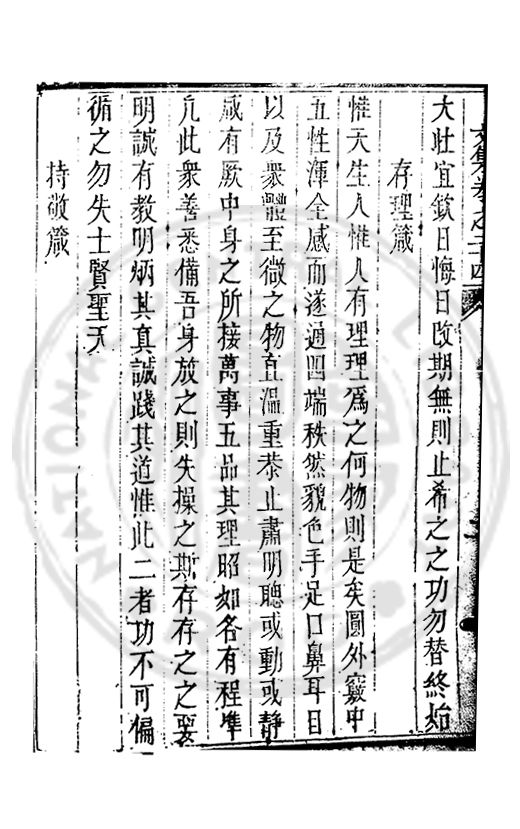 文集卷之二十四
大壯宜欽曰悔曰改期無則止希之之功勿替終始
存理箴
惟天生人惟人有理理爲之何物則是矣圓外竅中
五性渾全感而遂通四端秩然貌色手足口鼻耳目
以及衆體至微之物直溫重恭止肅明聰或動或靜
咸有厥中身之所接萬事五品其理昭如各有程準
凡此衆善悉備吾身放之則失操之斯存存之之要
明誠有教明炳其真誠踐其道惟此二者功不可偏
循之勿失士賢聖天
持敬箴